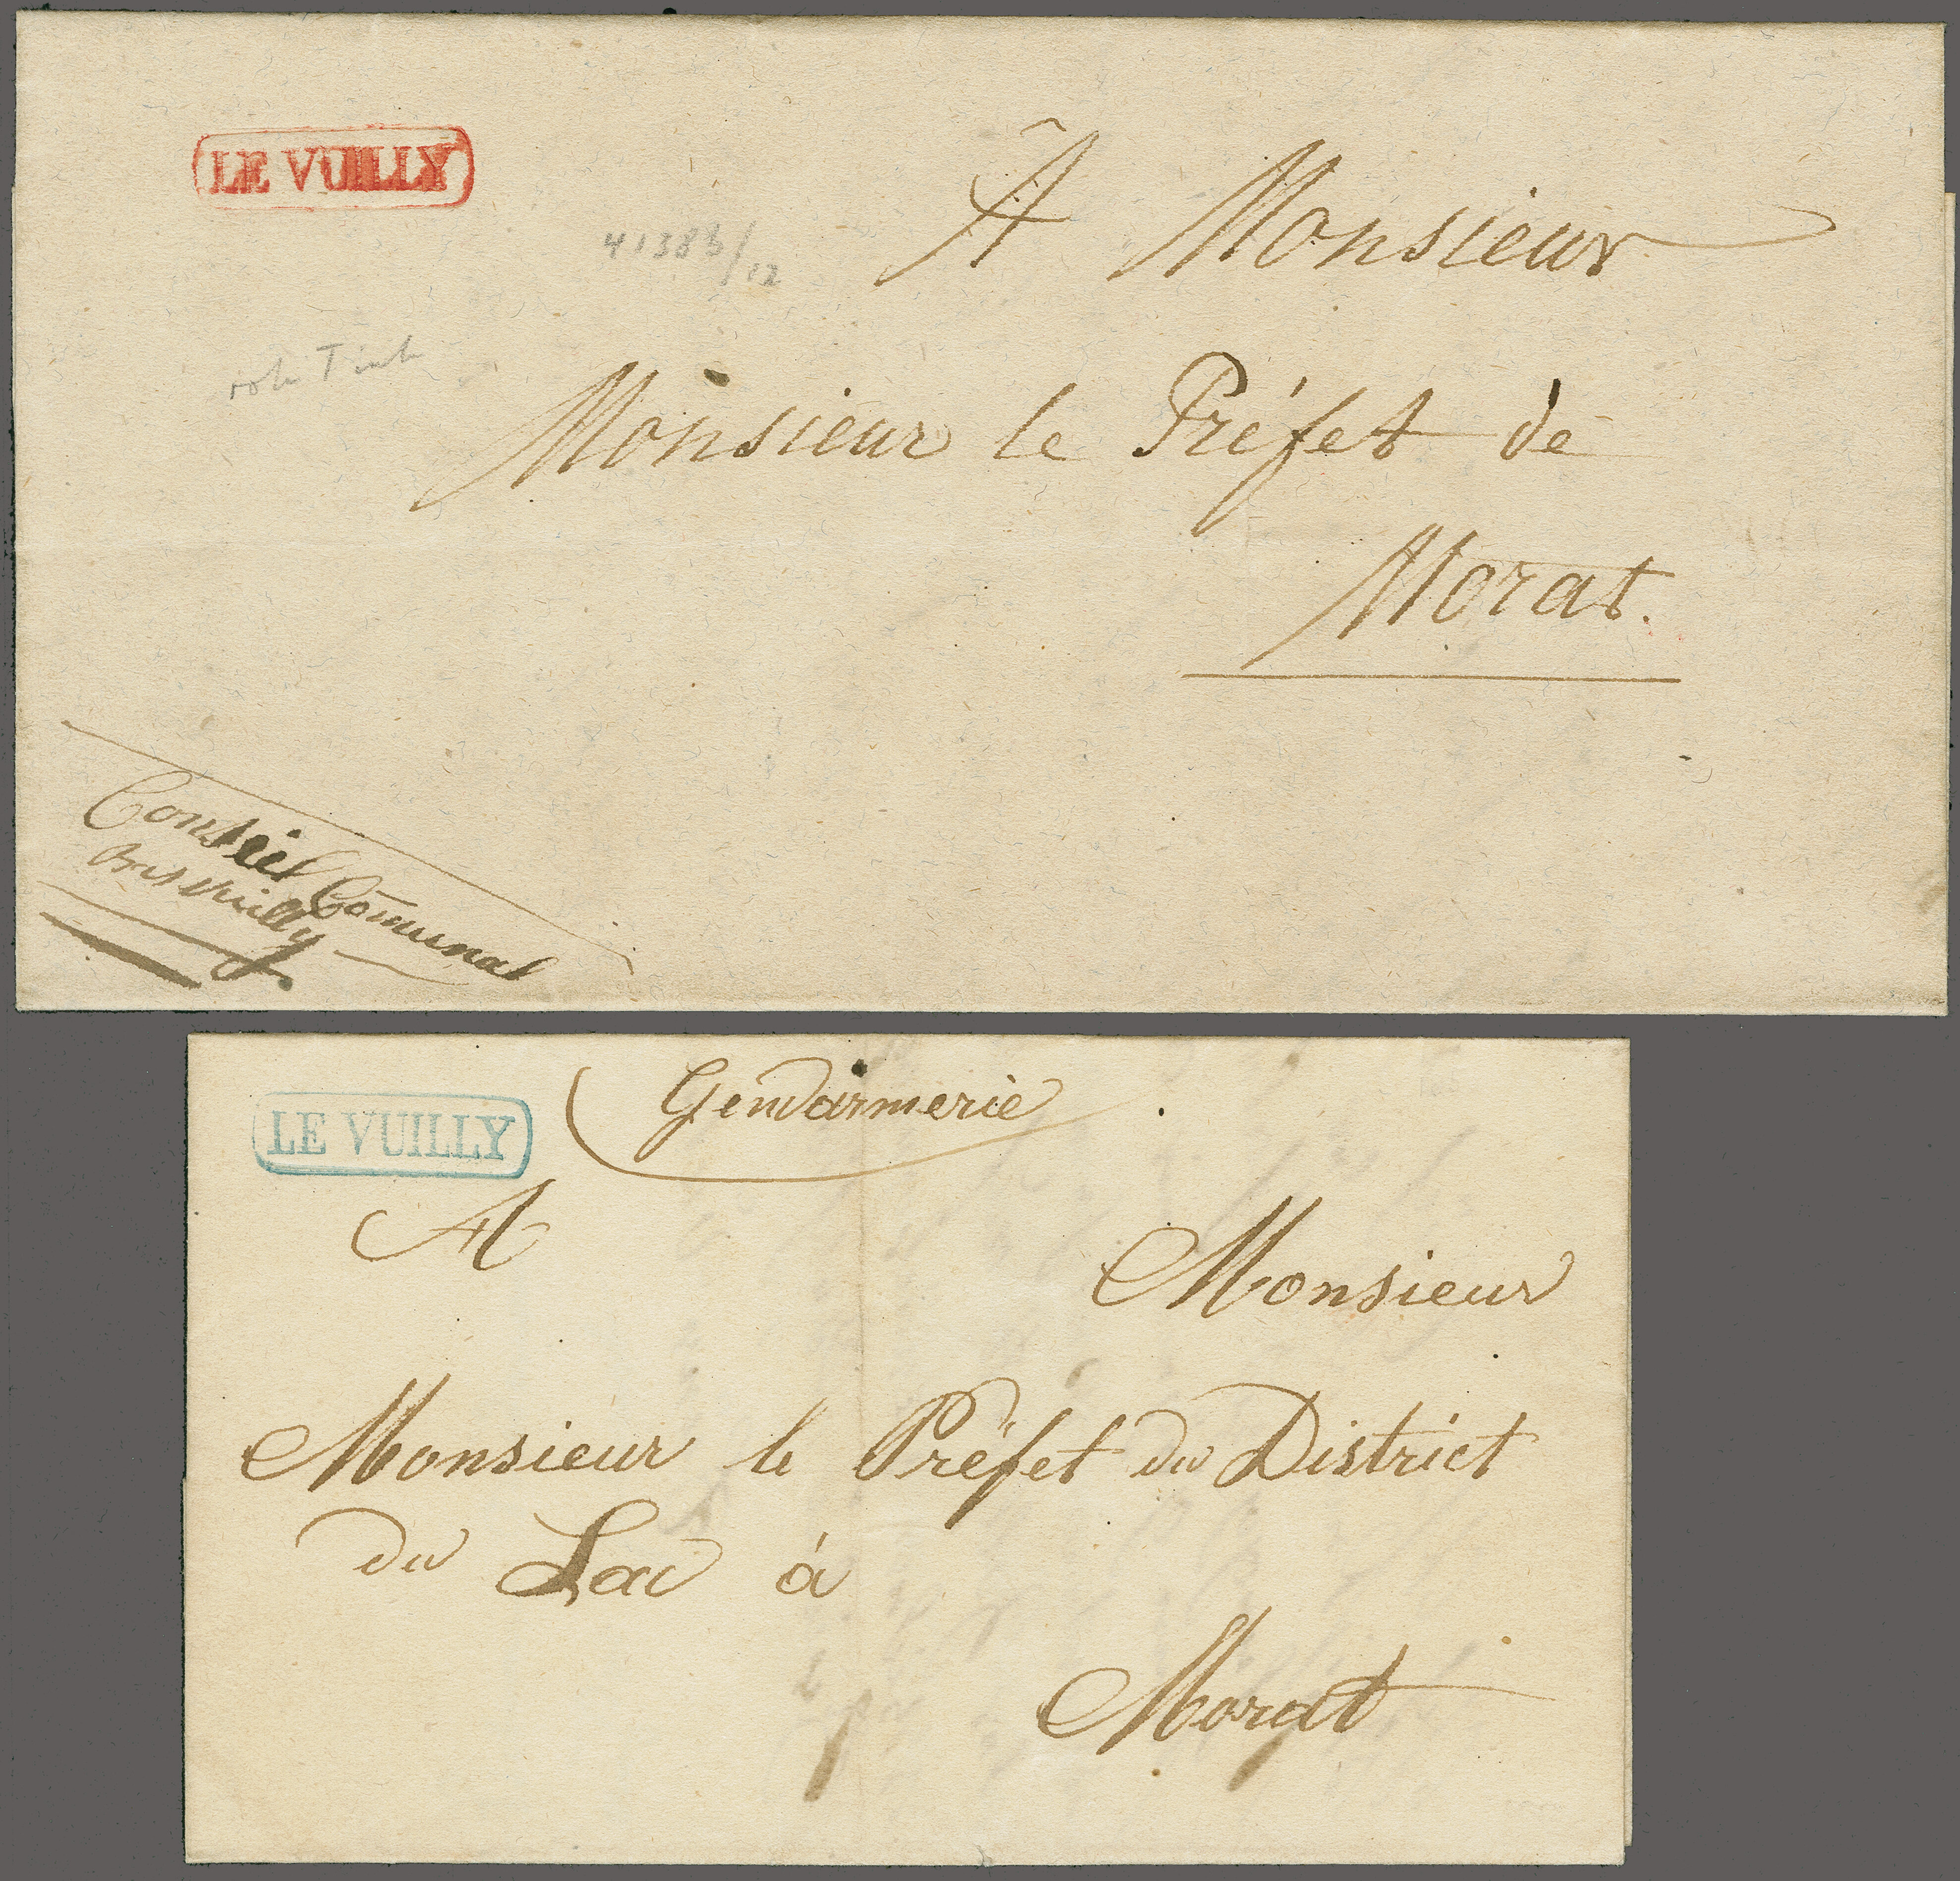 LE VUILLY
A Monsieur
41383/12
Monsieur le Préfet de
Morat.
Conseil Communal
Bas Vuilly
Gendarmerie
LE VUILLY
A Monsieur
Monsieur le Préfet du District
du Lac à
Morat